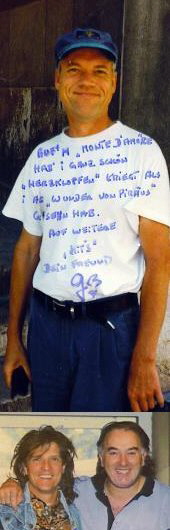 AUF'M „MONTE D'AMORE
HAB' I GANZ SCHÖN
„HERZKLOPFEN" KRIEGT ALS
I AS „WUNDER VON PIRÄUS"
G'SEHN HAB.
AUF WEITERE
„HITS"
DEIN FREUND